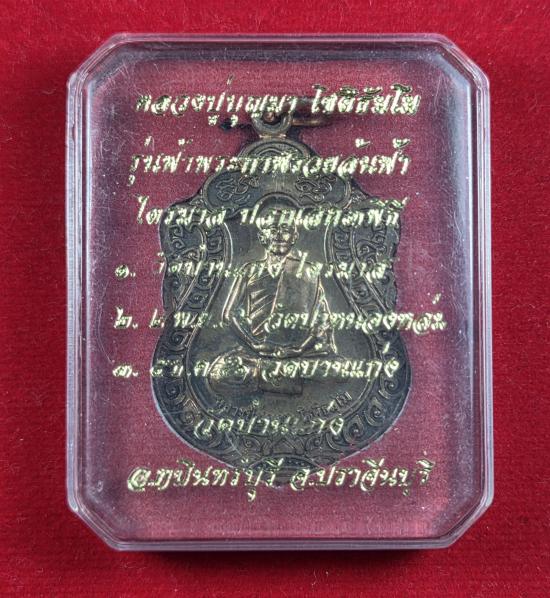 หลวงปู่บุญมา โชติธัมโม
รุ่นเฟ้าพระกาฬรวยล้นฟ้า
ไตรมาส ปลุกเสก๓พิธี
๑. วัดบ้านแก่ง ไตรมาส
๒. พ.ย. วัดป่าหนองหล่ม
๓. ๕ธ.ค. วัดบ้านแก่ง
วัดบ้านแก่ง
อ.กบินทร์บุรี จ.ปราจีนบุรี